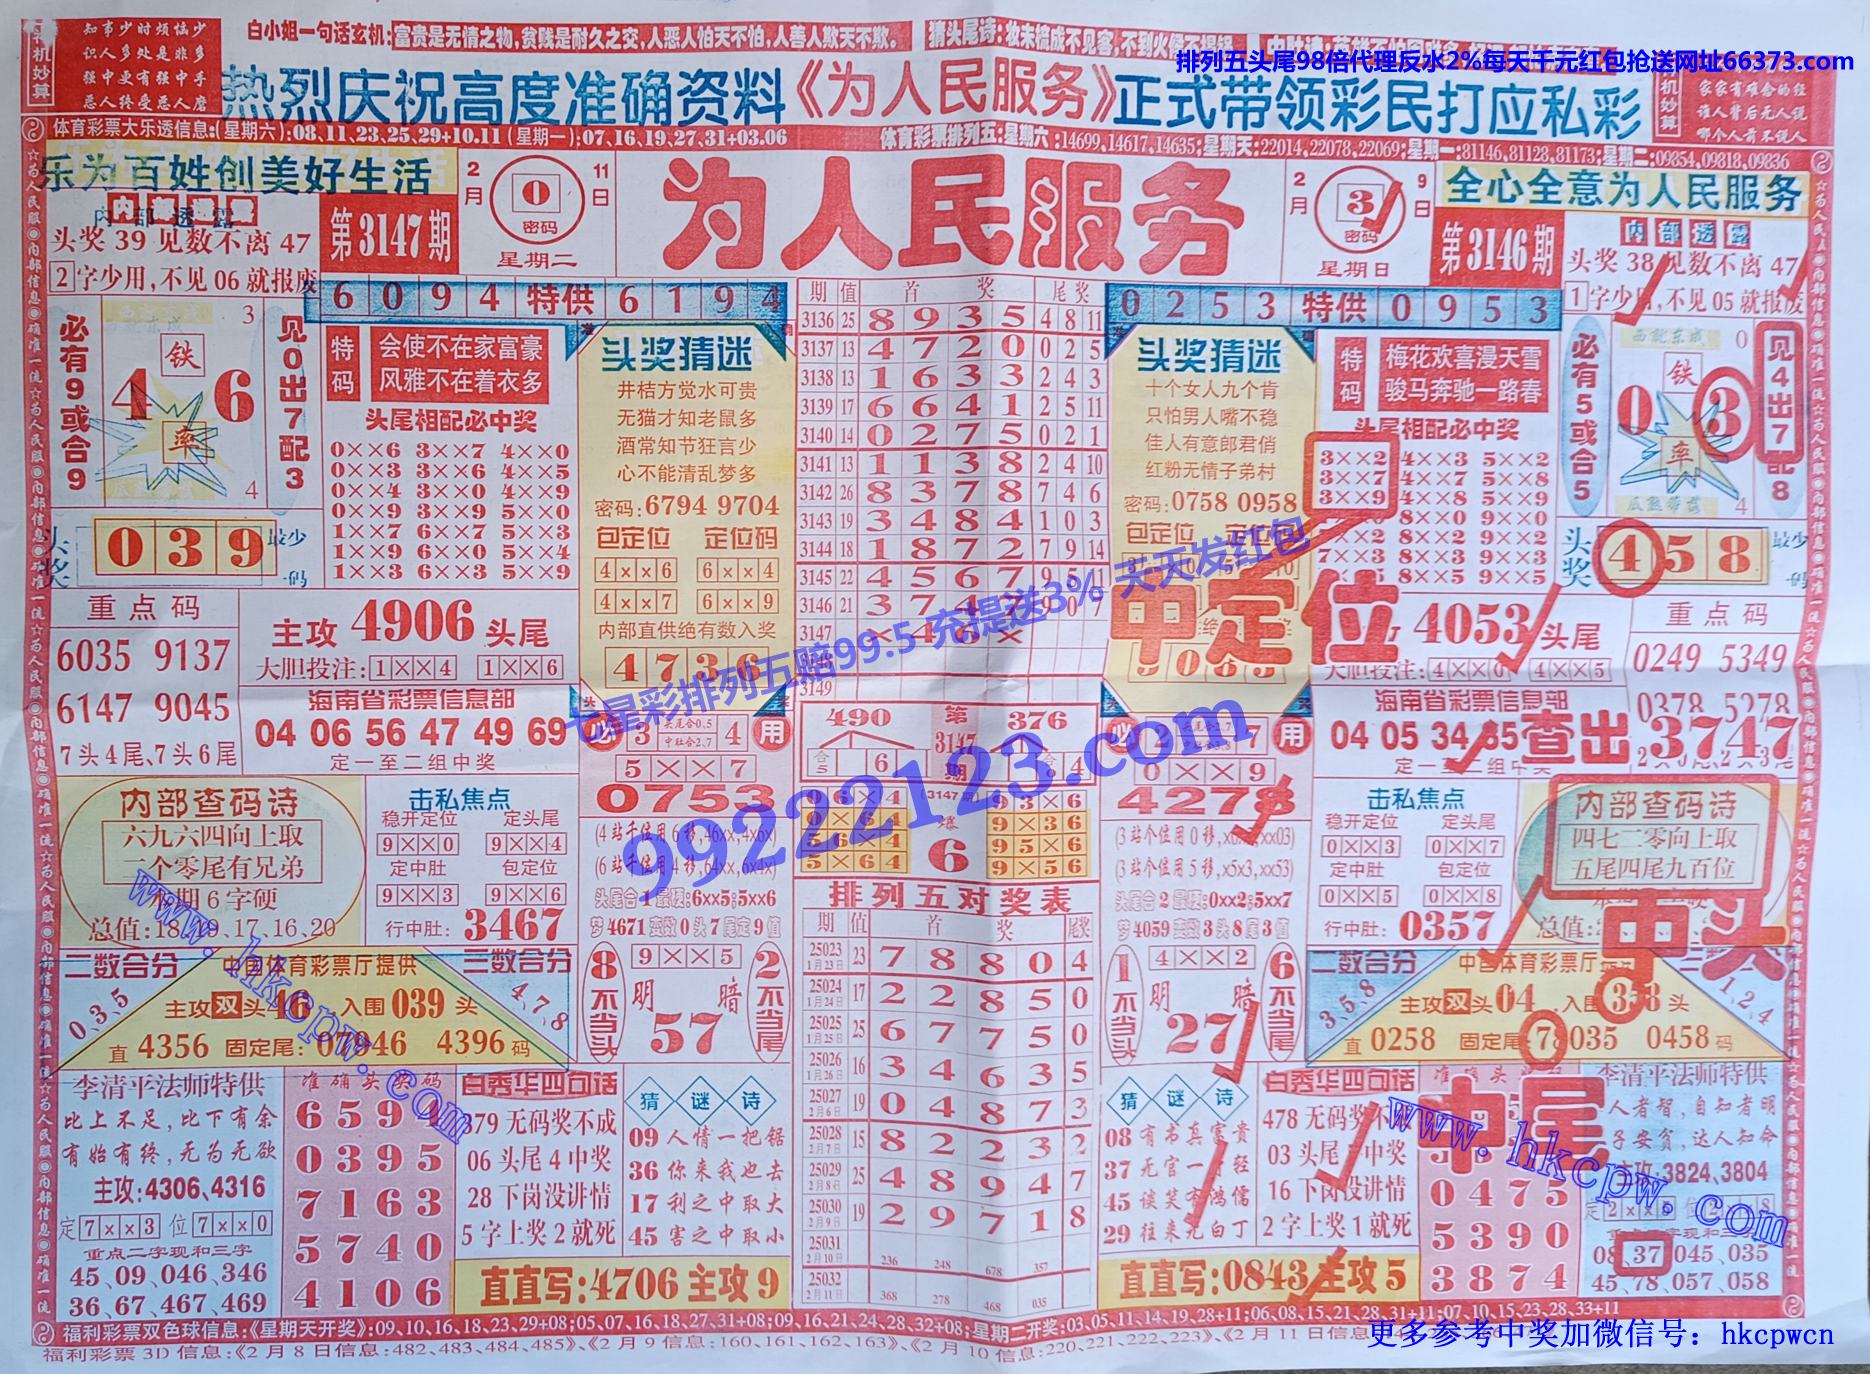 知事少时烦恼少
识人多处是非多
强中更有强中手
恶人终受恶人磨
机妙算
白小姐一句话玄机:富贵是无情之物,贫贱是耐久之交,人恶人怕天不怕,人善人欺天不欺。
猜头尾诗:妆未梳成不见客,不到火候不揭锅
排列五头尾98倍代理反水2%每天千元红包抢送网址66373.com
热烈庆祝高度准确资料《为人民服务》正式带领彩民打应私彩
机妙算
家家有难念的经
谁人背后无人说
哪个人前不说人
体育彩票大乐透信息:(星期六):08,11,23,25,29+10.11(星期一):07,16,19,27,31+03.06
体育彩票排列五:星期六:14699,14617,14635;星期天:22014,22078,22069;星期一:81146,81128,81173;星期二:09854,09818,09836
乐为百姓创美好生活
内部透露
头奖 39 见数不离 47
2字少用,不见 06 就报废
第3147期
2月11日
0
密码
星期二
为人民服务
2月9日
3
密码
星期日
第3146期
全心全意为人民服务
内部透露
头奖 38 见数不离 47
1字少用,不见 05 就报废
必有9或合9
3
铁
4 6
率
4
见0出7配3
头奖
0 3 9
最少
码
6 0 9 4 特供 6 1 9 4
特码
会使不在家富豪
风雅不在着衣多
头尾相配必中奖
0××6 3××7 4××0
0××3 3××6 4××5
0××4 3××0 4××9
0××9 3××9 5××0
1××7 6××7 5××3
1××9 6××0 5××4
1××3 6××3 5××9
头奖猜迷
井桔方觉水可贵
无猫才知老鼠多
酒常知节狂言少
心不能清乱梦多
密码:6794 9704
包定位 定位码
4××6 6××4
4××7 6××9
内部直供绝有数入奖
4 7 3 6
期 值 首 奖 尾奖
3136 25 8 9 3 5 4 8 11
3137 13 4 7 2 0 0 2 5
3138 13 1 6 3 3 2 4 3
3139 17 6 6 4 1 2 5 11
3140 14 0 2 7 5 0 2 1
3141 13 1 1 3 8 2 4 10
3142 26 8 3 7 8 7 4 6
3143 19 3 4 8 4 1 0 3
3144 18 1 8 7 2 7 9 14
3145 22 4 5 6 7 9 5 11
3146 21 3 7 4 7 9 0 7
3147 × 4 6 ×
3149
0 2 5 3 特供 0 9 5 3
头奖猜迷
十个女人九个肯
只怕男人嘴不稳
佳人有意郎君俏
红粉无情子弟村
密码:0758 0958
包定位 定位码
中定位
特码
梅花欢喜漫天雪
骏马奔驰一路春
头尾相配必中奖
3××2 4××3 5××2
3××7 4××5 5××8
3××9 4××8 5××9
8××0 9××0
8××2 9××3
7××3 8××3 9××2
8××5 9××5
必有5或合5
0
铁
0 3
率
4
见4出7配8
头奖
4 5 8
最少
码
重点码
6035 9137
6147 9045
7头4尾、7头6尾
主攻 4906 头尾
大胆投注: 1××4 1××6
海南省彩票信息部
04 06 56 47 49 69
定一至二组中奖
4053 头尾
大胆投注: 4××0 4××5
海南省彩票信息部
04 05 34 35
定一至二组中奖
查出 3747
重点码
0249 5349
0378 5278
七星彩排列五赔99.5 充提送3% 天天发红包
99222123.com
必 3 头尾合0.5 中肚合2、7 4 用
5××7
0753
(4 站千位用 6 移,46xx,4x6x)
(6 站千位用 4 移,64xx,6x4x)
头尾合 1 最硬:6xx5;5xx6
梦 4671 变数 0 头 7 尾定 9 值
490 第3147期 376
合5 6 4
9 6 × 4
0 × 6 4
5 6 × 4
5 × 6 4
3147期
爆
6
9 3 × 6
9 × 3 6
9 5 × 6
9 × 5 6
必 7 用
0××9
4278
(3 站个位用 5 移,x5x3,xx53)
头尾合 2 最硬:0xx2;5xx7
梦 4059 变数 3 头 8 尾 3 值
内部查码诗
六九六四向上取
二个零尾有兄弟
期 6 字硬
击私焦点
稳开定位 定头尾
9××0 9××4
定中肚 包定位
9××3 9××6
行中肚: 3467
击私焦点
稳开定位 定头尾
0××3 0××7
定中肚 包定位
0××5 0××8
行中肚: 0357
内部查码诗
四七二零向上取
五尾四尾九百位
中头
二数合分
0、3、5
三数合分
4、7、8
中国体育彩票厅提供
主攻双头 46 入围 039 头
直 4356 固定尾: 07946 4396 码
8不当头
9××5
明 暗
57
2不当尾
排列五对奖表
期 值 首 奖 尾奖
25023 1月23日 23 7 8 8 0 4
25024 1月24日 17 2 2 8 5 0
25025 1月25日 25 6 7 7 5 0
25026 1月26日 16 3 4 6 3 5
25027 2月6日 19 0 4 8 7 3
25028 2月7日 15 8 2 2 3 2
25029 2月8日 25 4 8 9 4 7
25030 2月9日 19 2 9 7 1 8
25031 2月10日 236 248 678 357
25032 2月11日 368 278 468 035
1不当头
4××2
明 暗
27
6不当尾
二数合分
3、5、8
1、2、4
中国体育彩票厅
主攻双头 04 入围 358 头
直 0258 固定尾 78035 0458 码
李清平法师特供
比上不足,比下有余
有始有终,无为无欲
主攻:4306、4316
定 7××3 位 7××0
重点二字现和三字
45、09、046、346
36、67、467、469
准确头奖码
6 5 9 4
0 3 9 5
7 1 6 3
5 7 4 0
4 1 0 6
白秀华四句话
379 无码奖不成
06 头尾 4 中奖
28 下岗没讲情
5 字上奖 2 就死
猜谜诗
09 人情一把锯
36 你来我也去
17 利之中取大
45 害之中取小
直直写:4706 主攻 9
猜谜诗
08 有书真富贵
37 无官一身轻
45 谈笑有鸿儒
29 往来无白丁
白秀华四句话
478 无码奖不
03 头尾 中奖
16 下岗没讲情
2 字上奖 1 就死
直直写:0843 主攻 5
中尾
0 4 7 5
5 3 9 0
3 8 7 4
李清平法师特供
人者智,自知者明
子安贫,达人知命
主攻:3824、3804
08、37、045、035
45、78、057、058
www.hkcpw.com
www.hkcpw.com
福利彩票双色球信息:《星期天开奖》:09、10、16、18、23、29+08;05、07、16、18、27、31+08;09、16、21、24、28、32+08;星期二开奖:03、05、11、14、19、28+11;06、08、15、21、28、31+11;07、10、15、23、28、33+11
福利彩票 3D 信息:《2 月 8 日信息:482、483、484、485》、《2 月 9 信息:160、161、162、163》、《2 月 10 信息:220、221、222、223》、《2 月 11 日信息
更多参考中奖加微信号: hkcpwcn